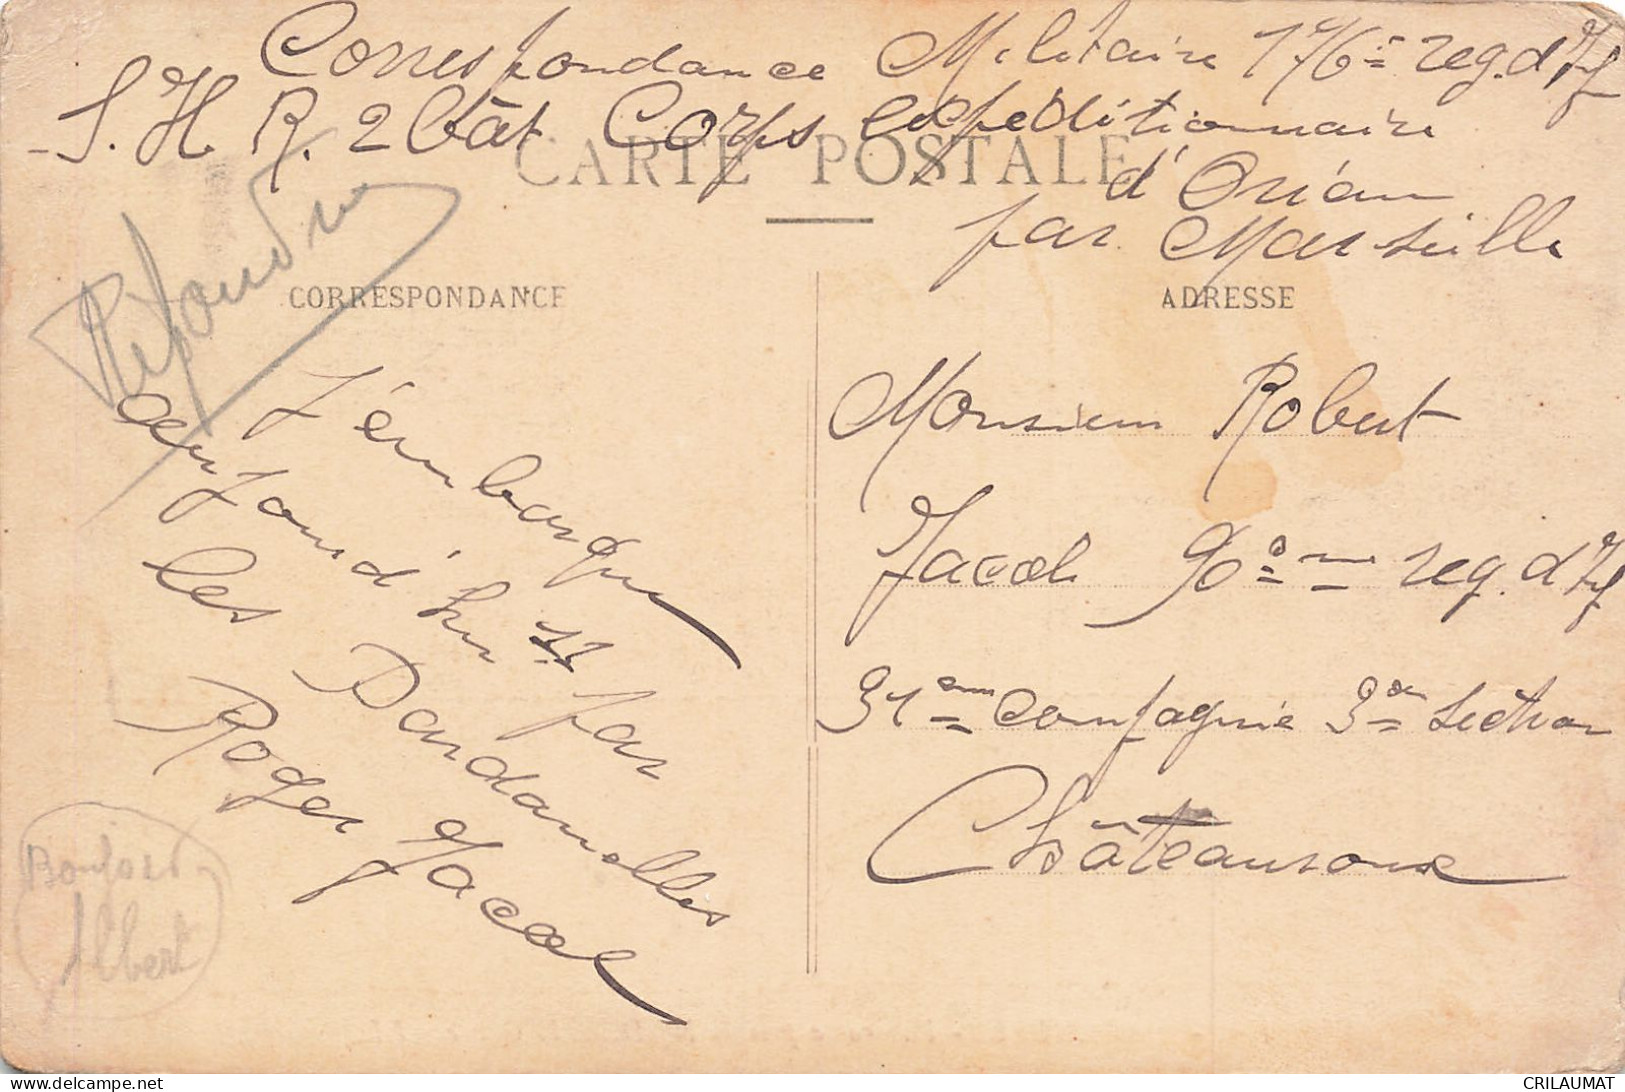 Correspondance Militaire 176e reg. d'If
S. H. R. 2 bât Corps expéditionnaire
d'Orien
par Marseille
CARTE POSTALE
CORRESPONDANCE
ADRESSE
Répondre
J'embarque
aujourd'hui 11 par
les Dardanelles
Roger Jacob
Bonjour
Albert
Monsieur Robert
Jacob 90eme reg. d'If
31eme compagnie 3eme section
Châteauroux
CRILAUMAT